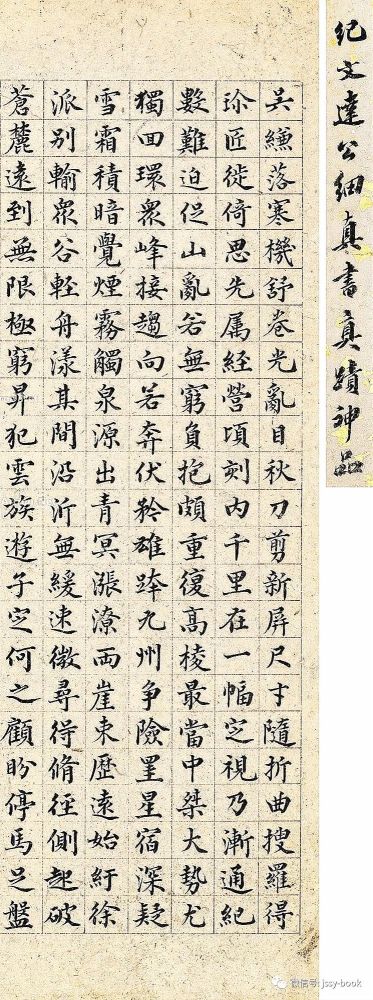 紀文達公細真書真蹟神品
吳縑落寒機舒卷光亂目秋刀剪新屏尺寸隨折曲搜羅得
珎匠徙倚思先属経營頃刻内千里在一幅定視乃漸通紀
數難迫促山亂若無窮負抱頗重復高棱最當中桀大勢尤
獨回環衆峰接趨向若奔伏矜雄跨九州争險罣星宿深疑
雪霜積暗覺煙霧觸泉源出青冥漲潦兩崖束歷遠始紆徐
派別輸眾谷輕舟漾其間沿泝無緩速微尋得脩徑側起破
蒼麓遠到無限極窮昇犯雲族遊子定何之顧盼停馬足盤
微信号: jssy-book